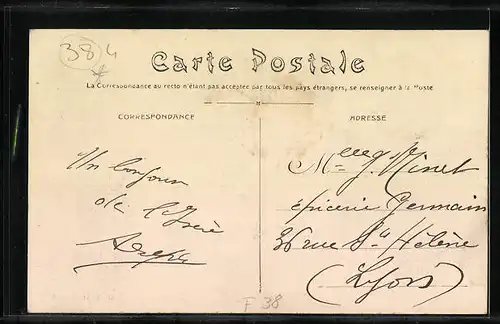 384
Carte Postale
La Correspondance au recto n'étant pas acceptée par tous les pays étrangers, se renseigner à la Poste
CORRESPONDANCE
ADRESSE
Un bonjour
de l'Isère
Melle
Minet
épicerie Germain
36 rue Ste Hélène
(Lyon)
F 38